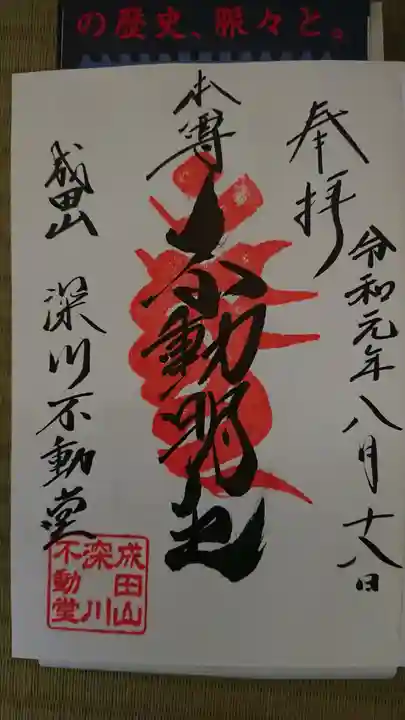 の歴史、脈々と。
奉拝
令和元年八月十八日
本尊
不動明王
成田山 深川不動堂
成田山
深川
不動堂